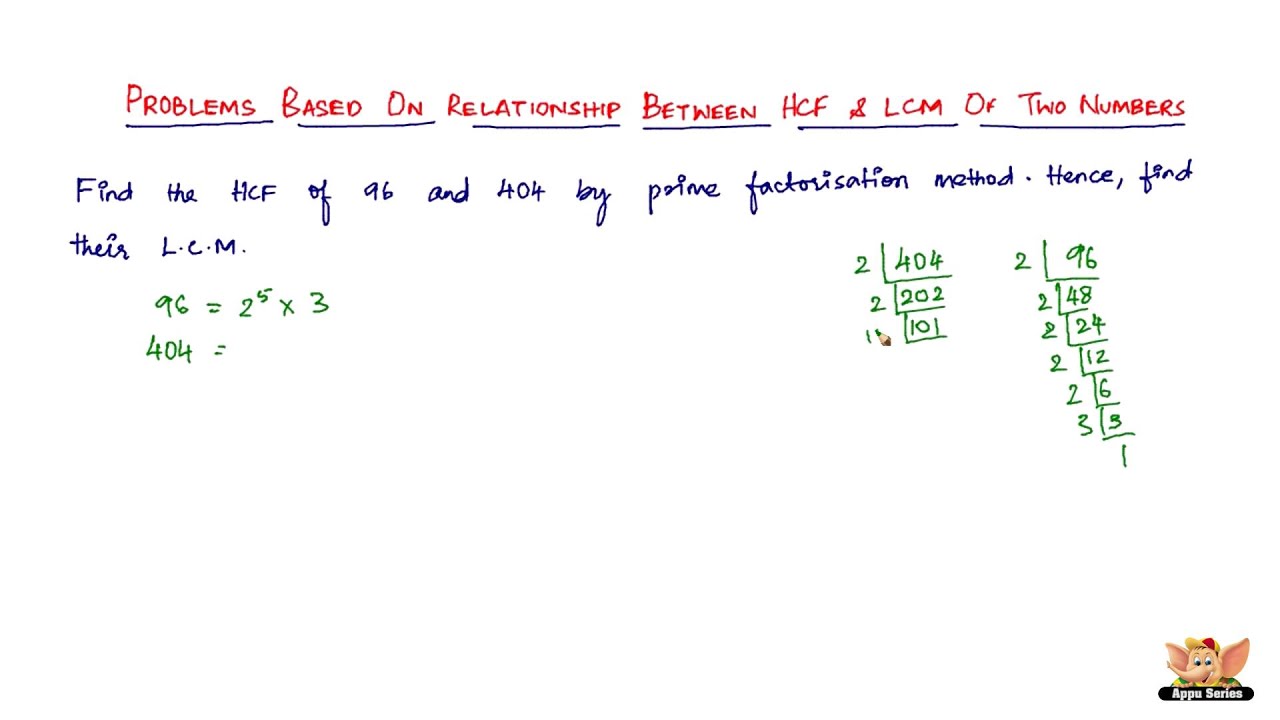 PROBLEMS BASED ON RELATIONSHIP BETWEEN HCF & LCM OF TWO NUMBERS
Find the HCF of 96 and 404 by prime factorisation method. Hence, find
their L.C.M.
96 = 2⁵ × 3
404 =
2 | 404
2 | 202
1 | 101
2 | 96
2 | 48
2 | 24
2 | 12
2 | 6
3 | 3
1
Appu Series